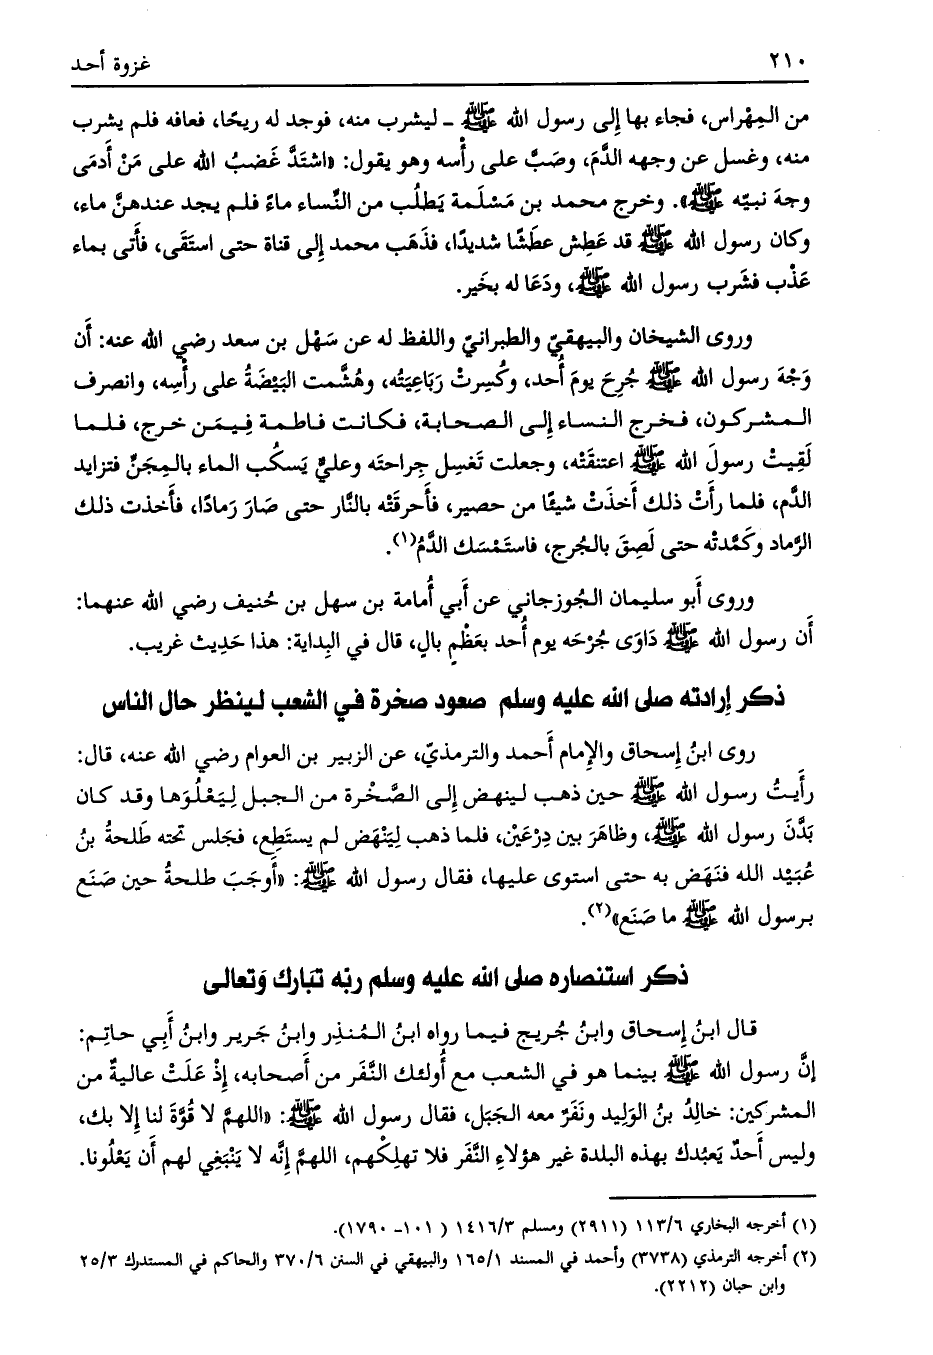 ٢١٠ غزوة أحد
من المِهْراس، فجاء بها إلى رسول الله ﷺ ـ ليشرب منه، فوجد له ريحًا، فعافه فلم يشرب
منه، وغسل عن وجهه الدَّمَ، وصَبَّ على رأْسه وهو يقول: «اشتَدَّ غَضبُ الله على مَنْ أَدمَى
وجهَ نبيّه ﷺ». وخرج محمد بن مَسْلَمة يَطلُب من النِّساء ماءً فلم يجد عندهنَّ ماء،
وكان رسول الله ﷺ قد عَطِش عطَشًا شديدًا، فذَهَب محمد إِلى قناة حتى استَقَى، فأَتى بماء
عَذْب فشَرب رسول الله ﷺ، ودَعَا له بخَير.
وروى الشيخان والبيهقيّ والطبرانيّ واللفظ له عن سَهْل بن سعد رضي الله عنه: أَن
وَجْهَ رسول الله ﷺ جُرِحَ يومَ أُحد، وكُسِرتْ رَبَاعِيَتُه، وهُشَّمت البَيْضَةُ على رأْسِه، وانصرف
المشركون، فخرج النساء إلى الصحابة، فكانت فاطمة فِيمَن خرج، فلما
لَقِيتْ رسولَ الله ﷺ اعتنقَتْه، وجعلت تَغسِل جِراحتَه وعليٌّ يَسكُب الماء بالمِجَنِّ فتزايد
الدَّم، فلما رأَتْ ذلك أَخذَتْ شيئًا من حصير، فأَحرقَتْه بالنَّار حتى صَارَ رَمادًا، فأَخذت ذلك
الرَّماد وكَمَّدتْه حتى لَصِقَ بالجُرح، فاستَمْسَك الدَّمُ(١).
وروى أَبو سليمان الجُوزجاني عن أَبي أُمامة بن سهل بن حُنيف رضي الله عنهما:
أَن رسول الله ﷺ دَاوَى جُرْحَه يوم أُحد بعَظْمٍ بالٍ، قال في البِداية: هذا حَدِيث غريب.
ذكر إرادته صلى الله عليه وسلم صعود صخرة في الشعب لينظر حال الناس
روى ابنُ إسحاق والإمام أَحمد والترمذيّ، عن الزبير بن العوام رضي الله عنه، قال:
رأَيتُ رسول الله ﷺ حين ذهب لينهض إلى الصَّخْرة من الجبل لِيَعْلُوَها وقد كان
بَدَّنَ رسول الله ﷺ، وظاهَرَ بين دِرْعَيْن، فلما ذهب لِيَنْهَض لم يستَطِع، فجَلس تحته طَلحةُ بنُ
عُبَيْد الله فنَهَض به حتى استوى عليها، فقال رسول الله ﷺ: «أَوجَبَ طلحةُ حين صَنَع
برسول الله ﷺ ما صَنَع»(٢).
ذكر استنصاره صلى الله عليه وسلم ربّه تبَارك وَتعالى
قال ابنُ إسحاق وابنُ جُريج فيما رواه ابنُ المُنذِر وابنُ جَرير وابنُ أَبي حاتِم:
إنَّ رسول الله ﷺ بينما هو في الشعب مع أُولئك النَّفَر من أَصحابه، إِذْ عَلَتْ عاليةٌ من
المشركين: خالدُ بنُ الوَلِيد ونَفَرٌ معه الجَبَل، فقال رسول الله ﷺ: «اللهمَّ لا قُوَّةَ لنا إلا بك،
وليس أَحدٌ يَعبُدك بهذه البلدة غير هؤلاءِ النَّفَر فلا تهلِكْهم، اللهمَّ إنَّه لا يَنْبَغِي لهم أَن يَعْلُونا.
(١) أخرجه البخاري ١١٣/٦ (٢٩١١) ومسلم ١٤١٦/٣ (١٠١ـ ١٧٩٠).
(٢) أخرجه الترمذي (٣٧٣٨) وأحمد في المسند ١٦٥/١ والبيهقي في السنن ٣٧٠/٦ والحاكم في المستدرك ٢٥/٣
وابن حبان (٢٢١٢).